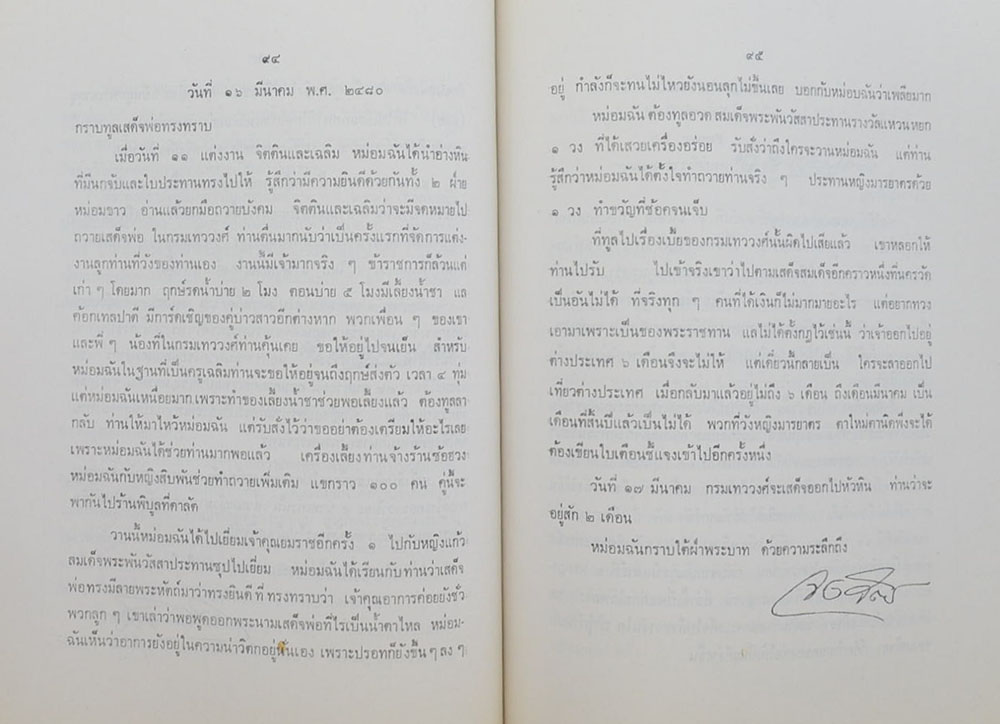 ๙๔
วันที่ ๑๖ มีนาคม พ.ศ. ๒๔๘๐
กราบทูลเสด็จพ่อทรงทราบ
เมื่อวันที่ ๑๑ แต่งงาน จิตตินและเฉลิม หม่อมฉันได้นำอ่างหิน
ที่มีนกจับและใบประทานทรงไปให้ รู้สึกว่ามีความยินดีด้วยกันทั้ง ๒ ฝ่าย
หม่อมขาว อ่านแล้วยกมือถวายบังคม จิตตินและเฉลิมว่าจะมีจดหมายไป
ถวายเสด็จพ่อ ในกรมเทววงศ์ ท่านตื่นมากนับว่าเป็นครั้งแรกที่จัดการแต่ง-
งานลูกท่านที่วังของท่านเอง งานนี้มีเจ้ามากจริง ๆ ข้าราชการก็ล้วนแต่
เก่า ๆ โดยมาก ฤกษ์รดน้ำบ่าย ๒ โมง ตอนบ่าย ๕ โมงมีเลี้ยงน้ำชา แล
ค๊อกเทลปาตี มีการ์ดเชิญของคู่บ่าวสาวอีกต่างหาก พวกเพื่อน ๆ ของเขา
และพี่ ๆ น้องที่ในกรมเทววงศ์ท่านคุ้นเคย ขอให้อยู่ไปจนเย็น สำหรับ
หม่อมฉันในฐานที่เป็นครูเฉลิมท่านจะขอให้อยู่จนถึงฤกษ์ส่งตัว เวลา ๔ ทุ่ม
แต่หม่อมฉันเหนื่อยมากเพราะทำของเลี้ยงน้ำชาช่วยพอเลี้ยงแล้ว ต้องทูลลา
กลับ ท่านให้มาไหว้หม่อมฉัน แต่รับสั่งไว้ว่าขออย่าต้องเตรียมให้อะไรเลย
เพราะหม่อมฉันได้ช่วยท่านมากพอแล้ว เครื่องเลี้ยงท่านจ้างร้านซ้อฮวง
หม่อมฉันกับหญิงสิบพันช่วยทำถวายเพิ่มเติม แขกราว ๑๐๐ คน คู่นี้จะ
พากันไปร้านพิบูลที่ตาลัด
วานนี้หม่อมฉันได้ไปเยี่ยมเจ้าคุณยมราชอีกครั้ง ๑ ไปกับหญิงแก้ว
สมเด็จพระพันวัสสาประทานซุปไปเยี่ยม หม่อมฉันได้เรียนกับท่านว่าเสด็จ
พ่อทรงมีลายพระหัตถ์มาว่าทรงยินดีที่ทรงทราบว่า เจ้าคุณอาการค่อยยังชั่ว
พวกลูก ๆ เขาเล่าว่าพอพูดออกพระนามเสด็จพ่อทีไรเป็นน้ำตาไหล หม่อม-
ฉันเห็นว่าอาการยังอยู่ในความน่าวิตกอยู่นั่นเอง เพราะปรอทก็ยังขึ้น ๆ ลง ๆ
๙๕
อยู่ กำลังก็จะทนไม่ไหวยังนอนลุกไม่ขึ้นเลย บอกกับหม่อมฉันว่าเพลียมาก
หม่อมฉัน ต้องทูลอวด สมเด็จพระพันวัสสาประทานรางวัลแหวนหยก
๑ วง ที่ได้เสวยเครื่องอร่อย รับสั่งว่าถึงใครจะวานหม่อมฉัน แต่ท่าน
รู้สึกว่าหม่อมฉันได้ตั้งใจทำถวายท่านจริง ๆ ประทานหญิงมารยาตรด้วย
๑ วง ทำขวัญที่ช้อคจนเจ็บ
ที่ทูลไปเรื่องเบี้ยของกรมเทววงศ์นั้นผิดไปเสียแล้ว เขาหลอกให้
ท่านไปรับ ไปเข้าจริงเขาว่าไปตามเสด็จสมเด็จอีกคราวหนึ่งที่นครวัด
เป็นอันไม่ได้ ที่จริงทุก ๆ คนที่ได้เงินก็ไม่มากมายอะไร แต่อยากทวง
เอามาเพราะเป็นของพระราชทาน แลไม่ได้ตั้งกฎไว้เช่นนี้ ว่าเจ้าออกไปอยู่
ต่างประเทศ ๖ เดือนจึงจะไม่ให้ แต่เดี๋ยวนี้กลายเป็น ใครจะลาออกไป
เที่ยวต่างประเทศ เมื่อกลับมาแล้วอยู่ไม่ถึง ๖ เดือน ถึงเดือนมีนาคม เป็น
เดือนที่สิ้นปีแล้วเป็นไม่ได้ พวกที่วังหญิงมารยาตร ตาใหม่ตานิดพึ่งจะได้
ต้องเขียนใบเตือนชี้แจงเข้าไปอีกครั้งหนึ่ง
วันที่ ๑๗ มีนาคม กรมเทววงศ์จะเสด็จออกไปหัวหิน ท่านว่าจะ
อยู่สัก ๒ เดือน
หม่อมฉันกราบใต้ฝ่าพระบาท ด้วยความระลึกถึง